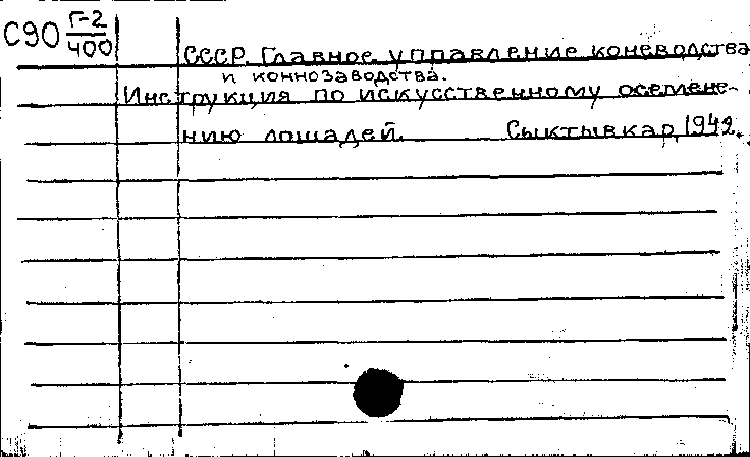 С90 Г-2
400
СССР. Главное управление коневодства
и коннозаводства.
Инструкция по искусственному осемене-
нию лошадей. Сыктывкар, 1942.